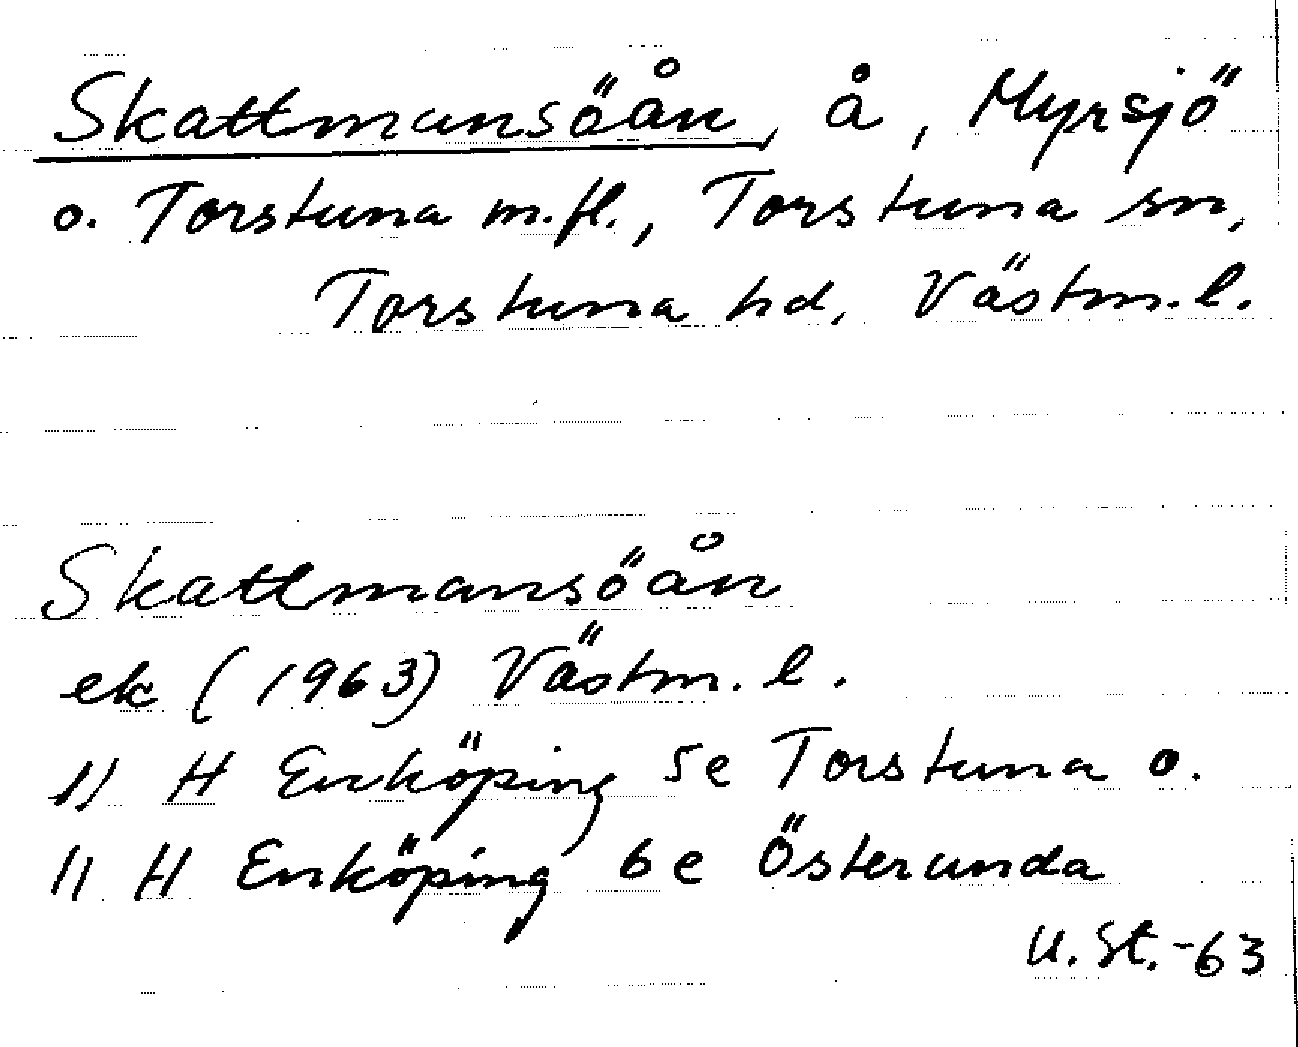 Skattmansöån, å, Myrsjö
o. Torstuna m.fl., Torstuna sn,
Torstuna hd, Västm.l.
Skattmansöån
ek (1963) Västm.l.
11 H Enköping 5e Torstuna o.
11 H Enköping 6e Österunda
U.St.-63